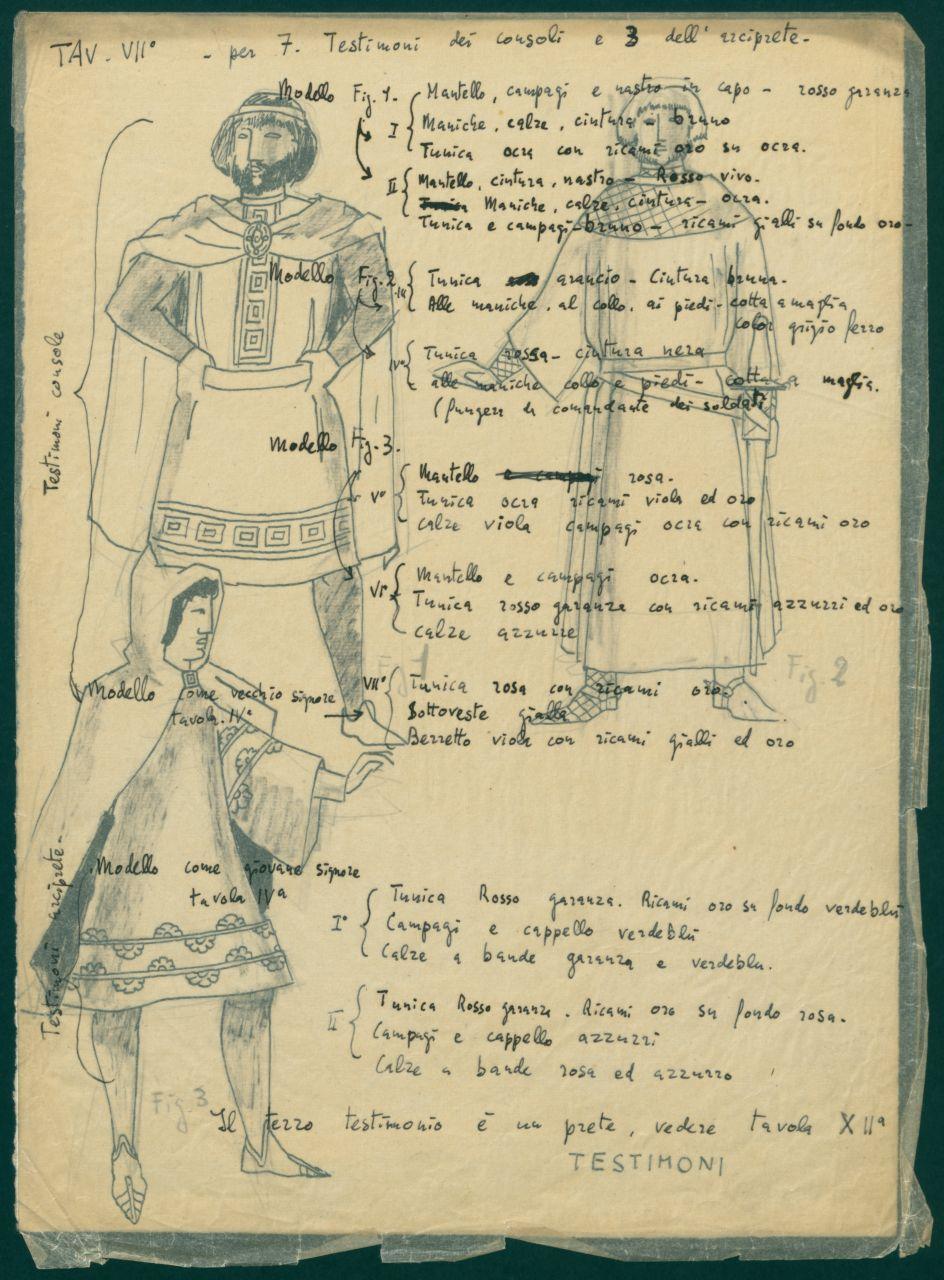 TAV. VII° - per 7. Testimoni dei consoli e 3 dell'arciprete -
Modello Fig. 1.
I Mantello, campagi e nastro in capo - rosso garanza
Maniche, calze, cintura - bruno
Tunica ocra con ricami oro su ocra.
II Mantello, cintura, nastro - Rosso vivo.
Maniche, calze, cintura - ocra.
Tunica e campagi bruno - ricami gialli su fondo oro -
Modello Fig. 2
III Tunica arancio - Cintura bruna.
Alle maniche, al collo, ai piedi - cotta a maglia
color grigio ferro
IV° Tunica rossa - cintura nera
alle maniche collo e piedi - cotta a maglia.
(funger da comandante dei soldati
Testimoni console
Modello Fig. 3.
V° Mantello rosa.
Tunica ocra ricami viola ed oro
Calze viola campagi ocra con ricami oro
VI° Mantello e campagi ocra.
Tunica rosso garanza con ricami azzurri ed oro
Calze azzurre
Fig. 1
Fig. 2
Modello come vecchio signore
tavola. IVª
VII° Tunica rosa con ricami oro.
Sottoveste gialla
Berretto viola con ricami gialli ed oro
Testimoni arciprete -
Modello come giovane signore
tavola IVª
I° Tunica Rosso garanza. Ricami oro su fondo verdeblù
Campagi e cappello verdeblù
Calze a bande garanza e verdeblu.
II Tunica Rosso garanza. Ricami oro su fondo rosa.
Campagi e cappello azzurri
Calze a bande rosa ed azzurro
Fig. 3
Il terzo testimonio è un prete, vedere tavola XIIª
TESTIMONI